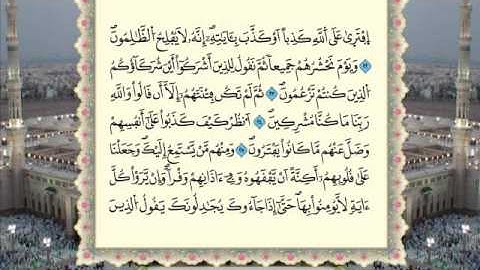 اِفْتَرَىٰ عَلَى اَللَّهِ كَذِباً اَوْ كَذَّبَ بِـَٔايَـٰتِهِۦٓۖ إِنَّهُۥ لَا يُفْلِحُ اُلظَّـٰلِمُونَۖ
وَيَوْمَ نَحْشُرُهُمْ جَمِيعاً ثُمَّ نَقُولُ لِلذِينَ أَشْرَكُوٓاْ أَيْنَ شَرَكَآؤُكُمُ
اُلذِينَ كُنتُمْ تَزْعُمُونَۖ ثُمَّ لَمْ تَكُن فِتْنَتَهُمُۥٓ إِلَّآ أَن قَالُواْ وَاللَّهِ
رَبِّنَا مَا كُنَّا مُشْرِكِينَۖ اَنظُرْ كَيْفَ كَذَبُواْ عَلَىٰٓ أَنفُسِهِمْ
وَضَلَّ عَنْهُم مَّا كَانُواْ يَفْتَرُونَۖ وَمِنْهُم مَّنْ يَّسْتَمِعُ إِلَيْكَۖ وَجَعَلْنَا
عَلَىٰ قُلُوبِهِمُۥٓ أَكِنَّةً أَنْ يَّفْقَهُوهُ وَفِےٓ ءَاذَانِهِمْ وَقْراًۖ وَإِنْ يَّرَوْاْ كُلَّ
ءَايَةٍ لَّا يُومِنُواْ بِهَاۖ حَتَّىٰٓ إِذَا جَآءُوكَ يُجَـٰدِلُونَكَ يَقُولُ اُلذِينَ